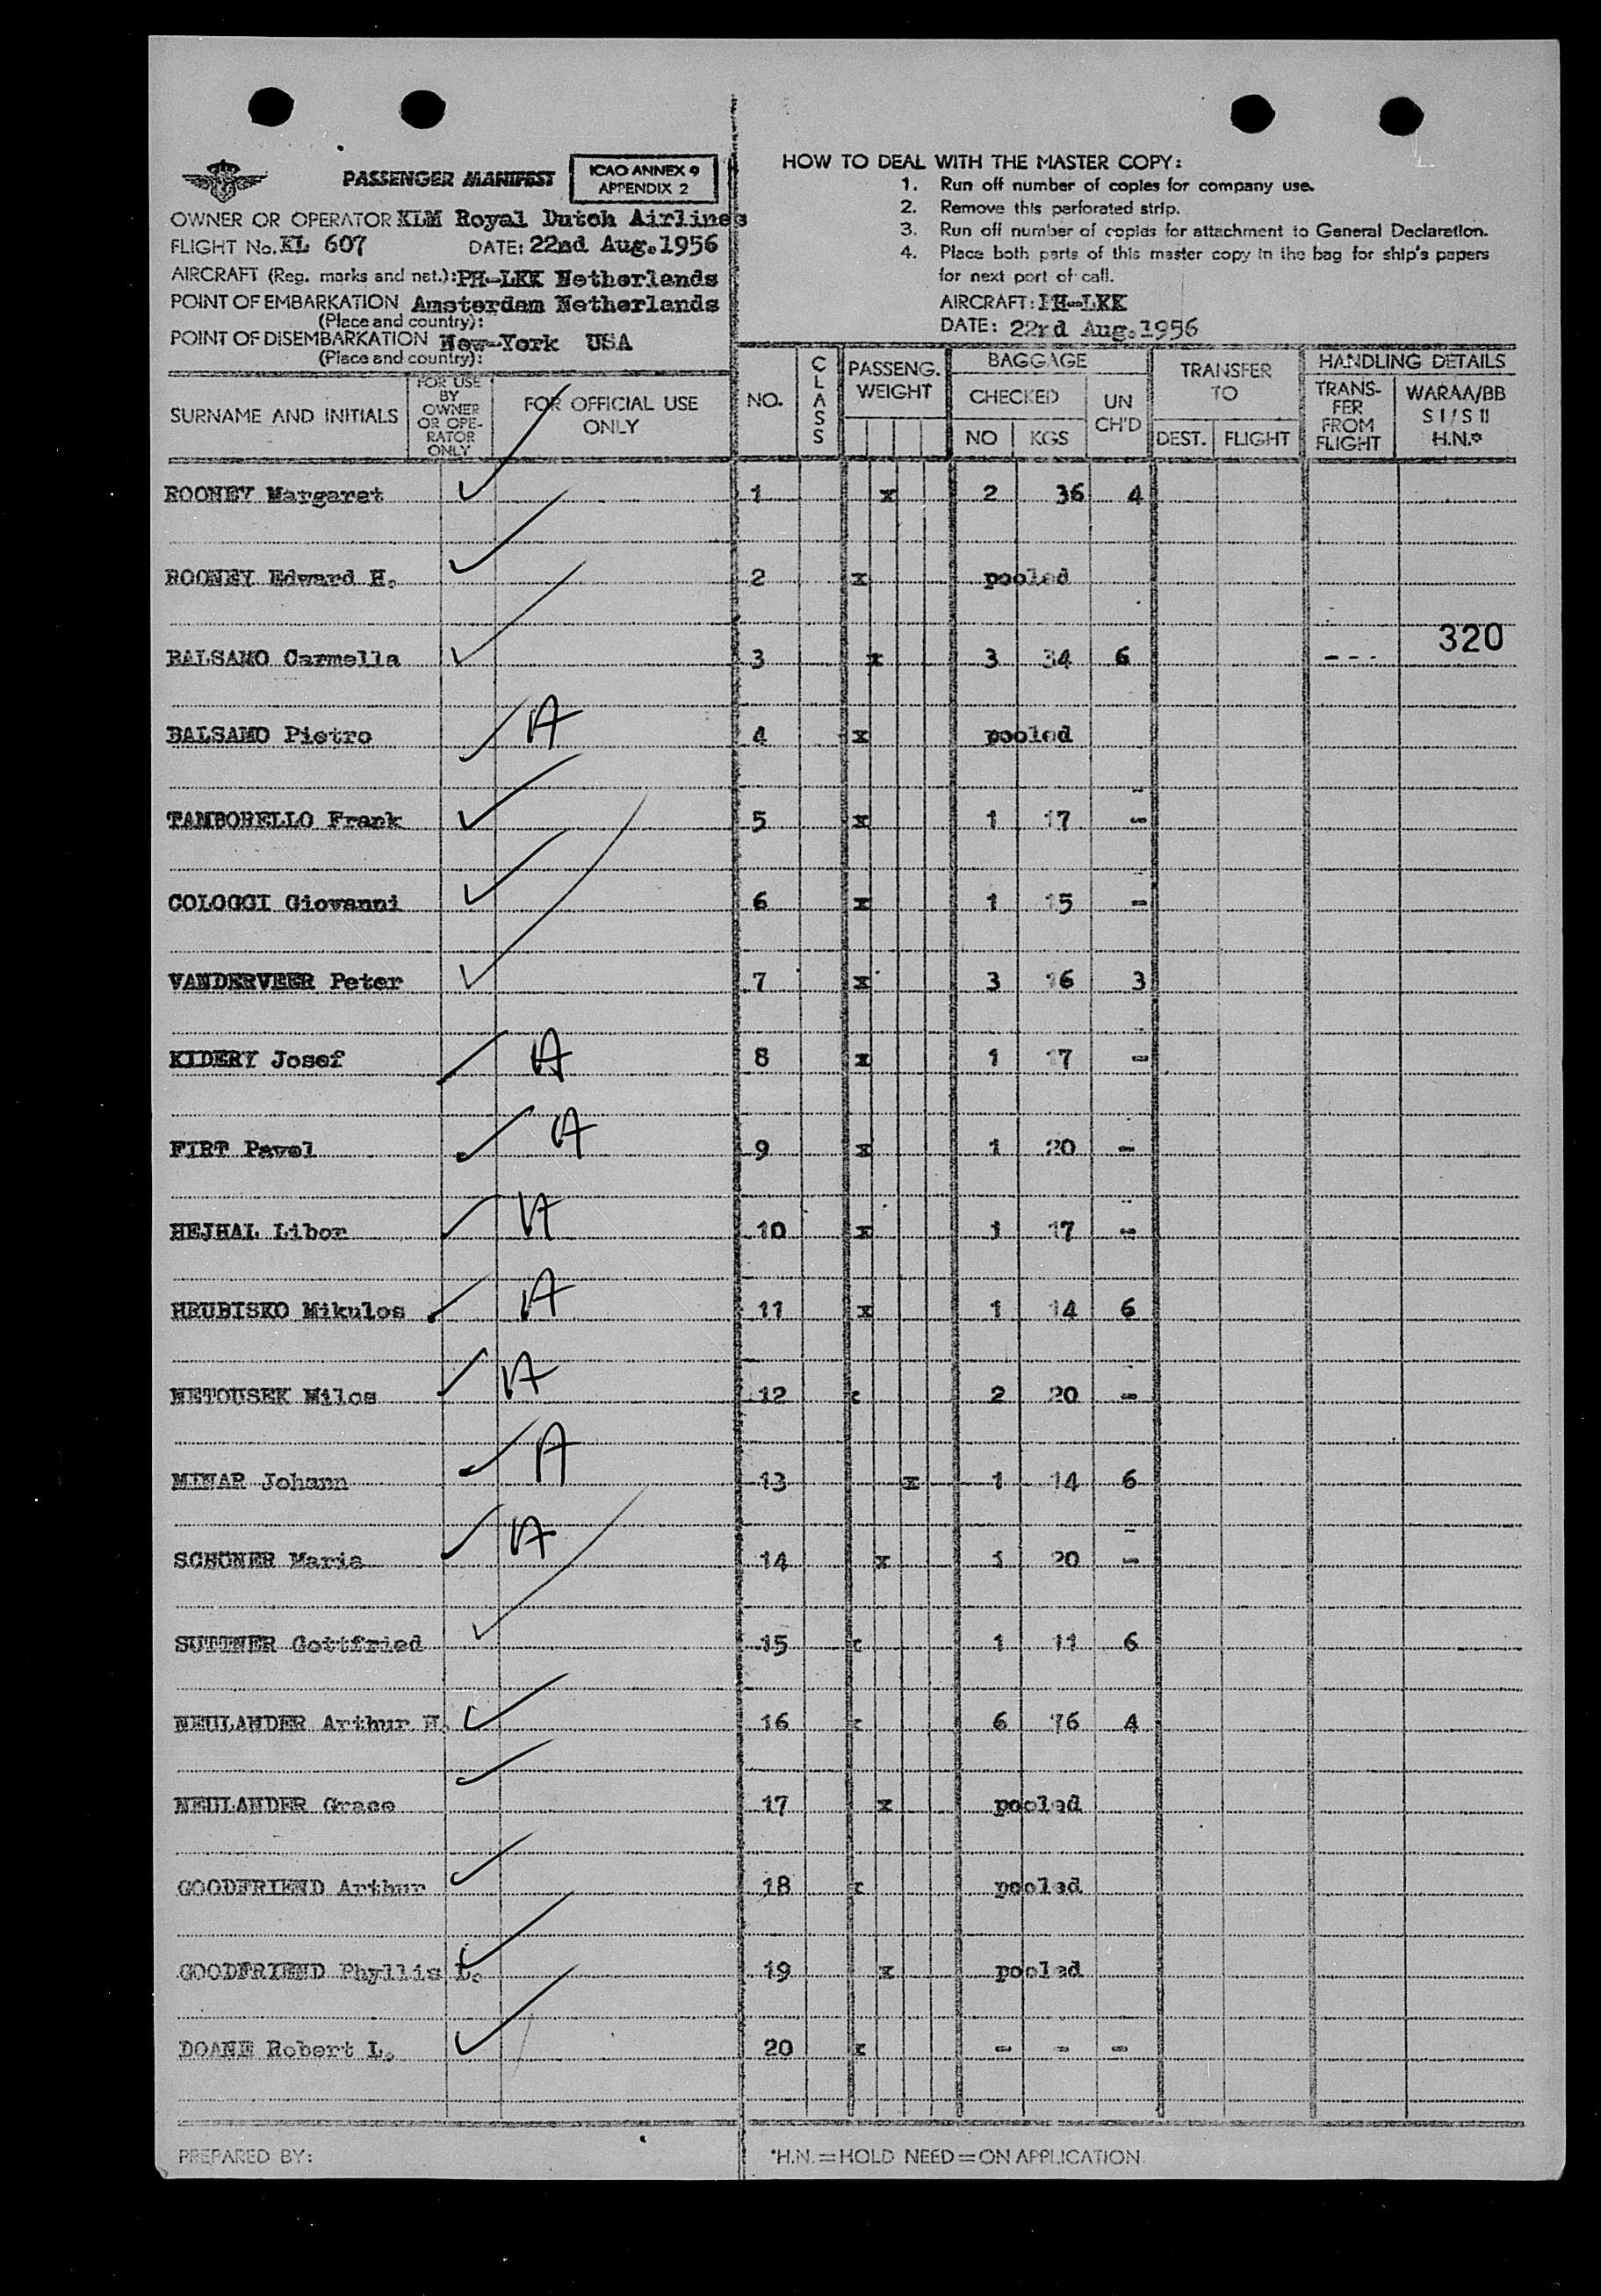 PASSENGER MANIFEST
ICAO ANNEX 9
APPENDIX 2
OWNER OR OPERATOR KLM Royal Dutch Airlines
FLIGHT No. KL 607 DATE: 22nd Aug.1956
AIRCRAFT (Reg. marks and nat.): PH-LKK Netherlands
POINT OF EMBARKATION Amsterdam Netherlands
(Place and country):
POINT OF DISEMBARKATION New-York USA
(Place and country):
HOW TO DEAL WITH THE MASTER COPY:
1. Run off number of copies for company use.
2. Remove this perforated strip.
3. Run off number of copies for attachment to General Declaration.
4. Place both parts of this master copy in the bag for ship's papers
for next port of call.
AIRCRAFT: PH-LKK
DATE: 22rd Aug.1956
SURNAME AND INITIALS
FOR USE
BY
OWNER
OR OPE-
RATOR
ONLY
FOR OFFICIAL USE
ONLY
NO.
CLASS
PASSENG.
WEIGHT
BAGGAGE
CHECKED
NO KGS
UN
CH'D
TRANSFER
TO
DEST. FLIGHT
HANDLING DETAILS
TRANS-
FER
FROM
FLIGHT
WARAA/BB
S I / S II
H.N.*
ROONEY Margaret 1 x 2 36 4
ROONEY Edward H. 2 x pooled
320
BALSAMO Carmella 3 x 3 34 6 ---
BALSAMO Pietro A 4 x pooled
TAMBORELLO Frank 5 x 1 17 -
COLOGGI Giovanni 6 x 1 15 -
VANDERVEER Peter 7 x 3 16 3
KIDERY Josef A 8 x 1 17 -
FIRT Pavel A 9 x 1 20 -
HEJHAL Libor A 10 x 1 17 -
HRUBISKO Mikulos A 11 x 1 14 6
NETOUSEK Milos A 12 x 2 20 -
MINAR Johann A 13 x 1 14 6
SCHÖNER Maria A 14 x 1 20 -
SUTTNER Gottfried 15 x 1 11 6
NEULANDER Arthur H. 16 x 6 76 4
NEULANDER Grace 17 x pooled
GOODFRIEND Arthur 18 x pooled
GOODFRIEND Phyllis L. 19 x pooled
DOANE Robert L. 20 x - - -
PREPARED BY:
*H.N. = HOLD NEED = ON APPLICATION